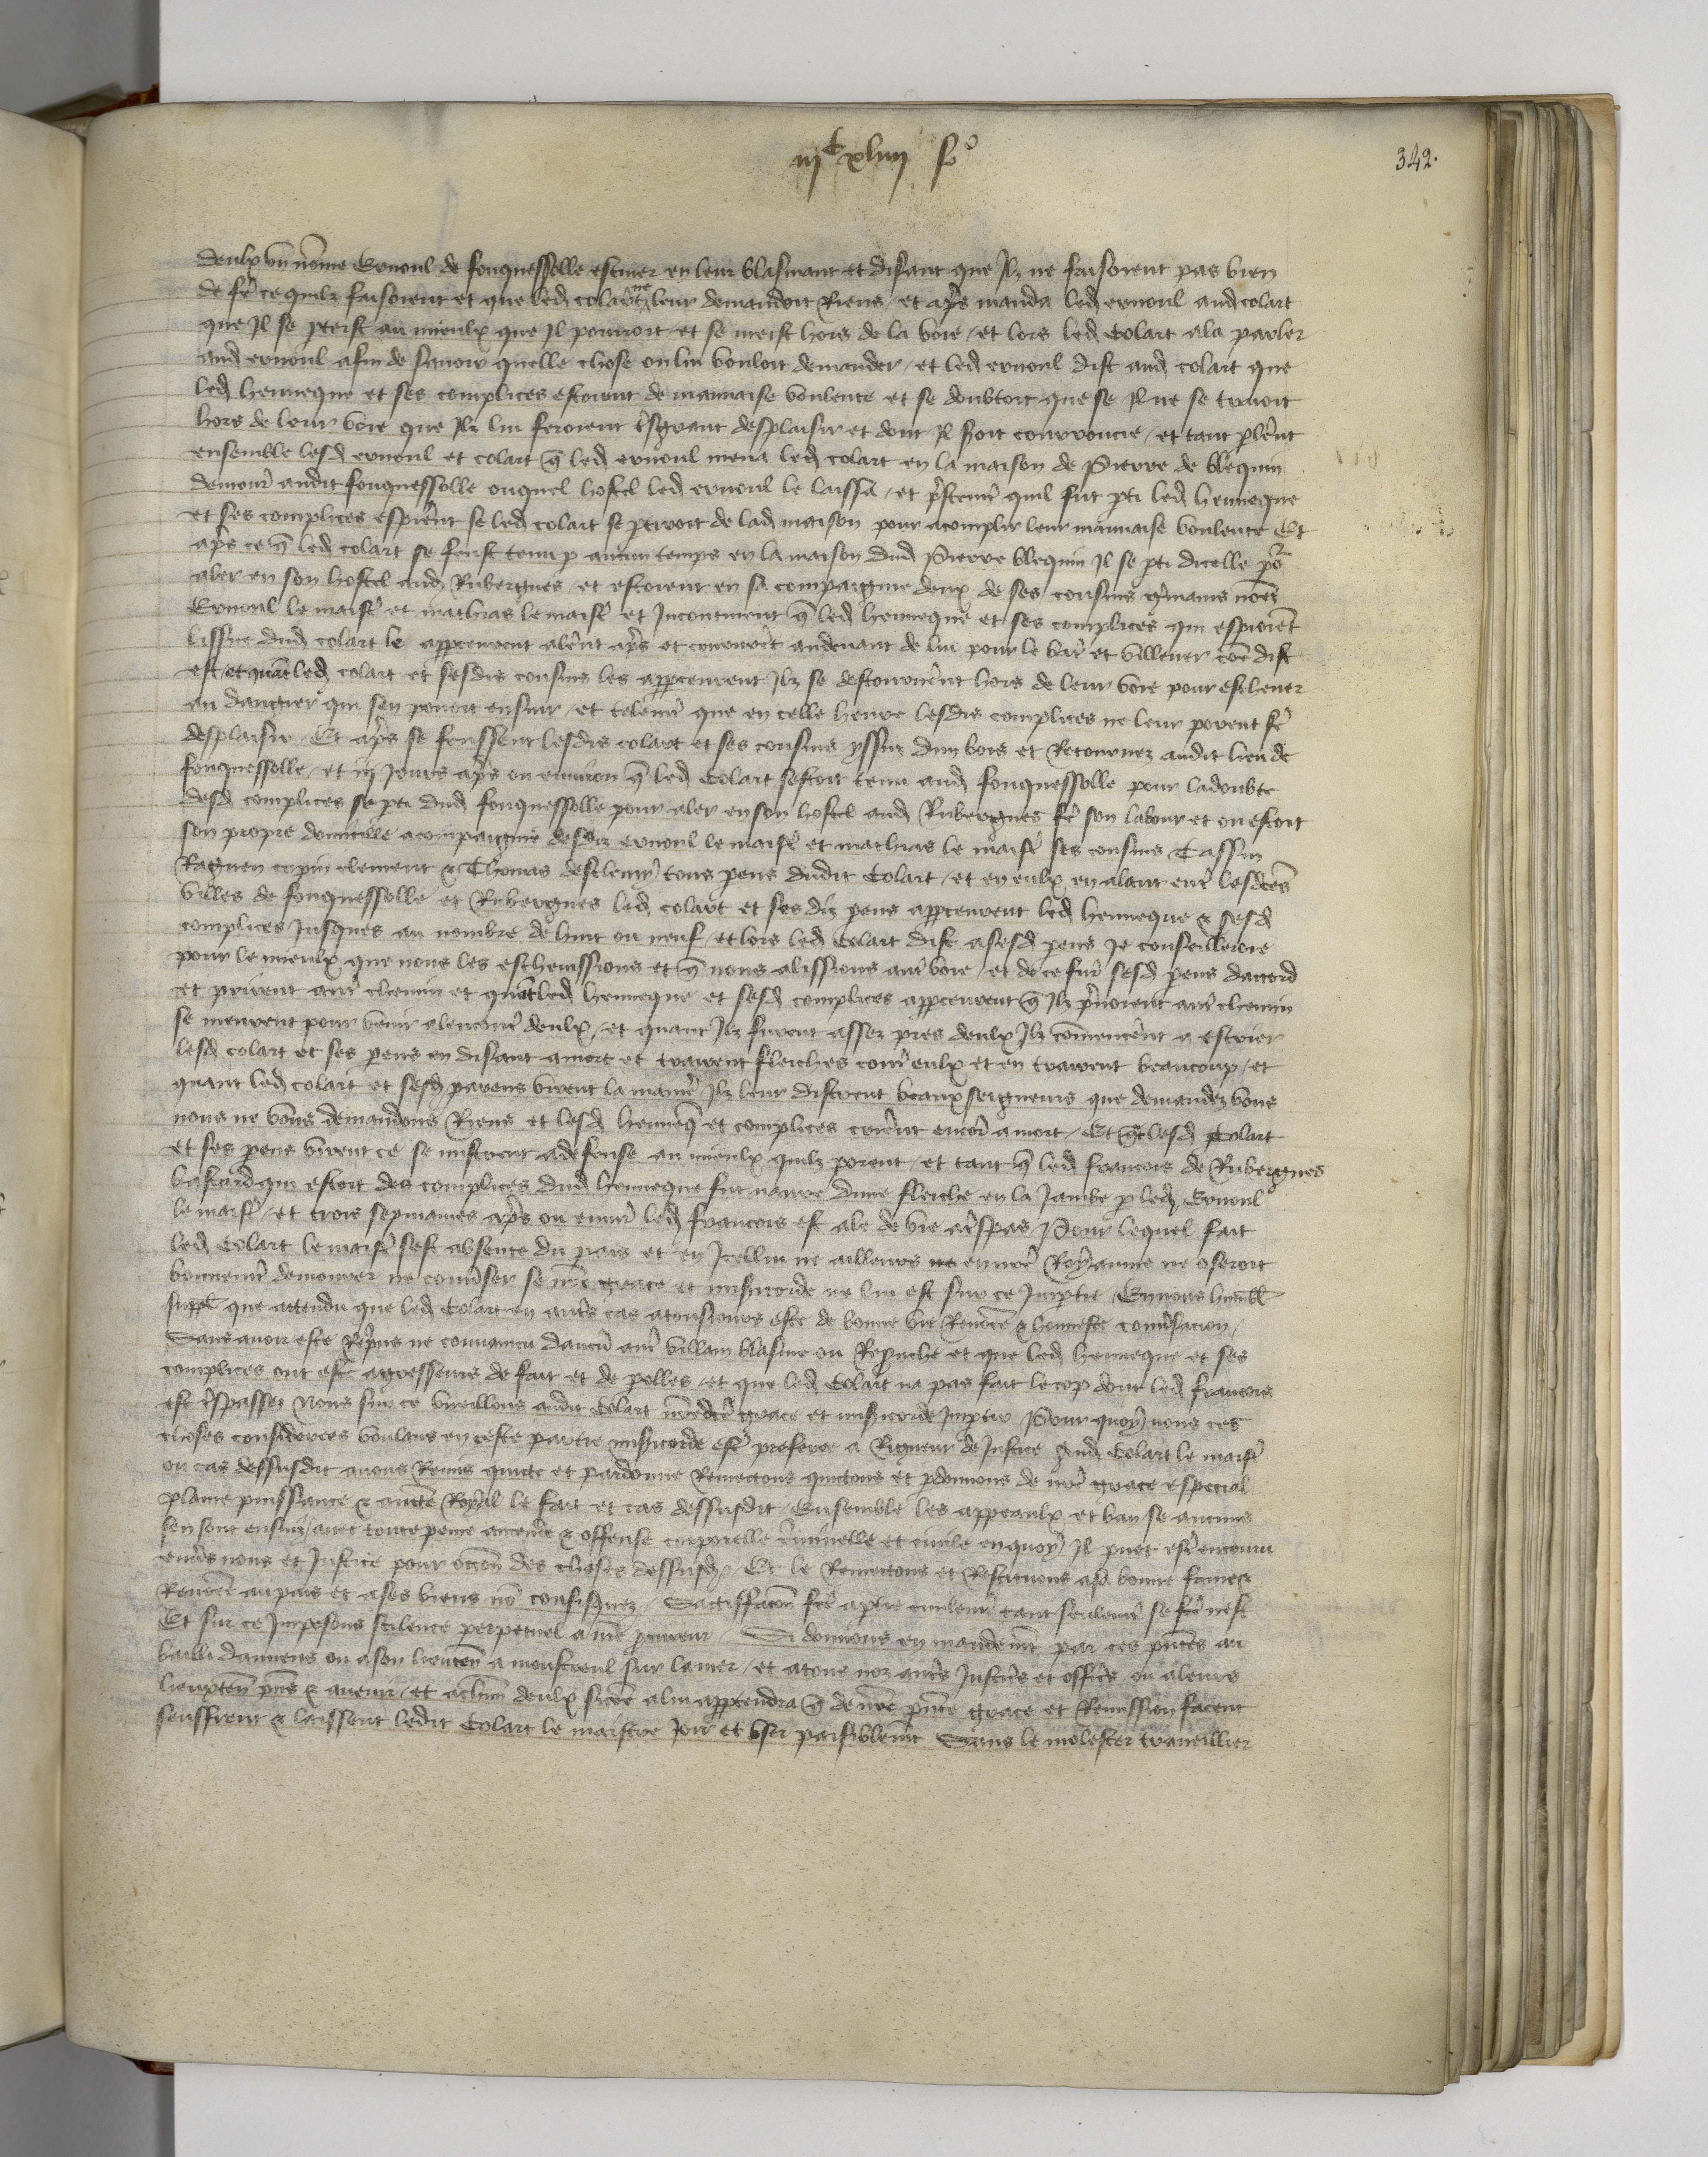 iijC xliiij fo
342.
deulx un nomme Ernoul de fouquessolle escuier en leur blasmant et disant que Ilz ne faisoient pas bien
de fe ce quilz faisoient et que led colart ne leur demandoit Riens / et apres manda led ernoul aud colart
que Il se pteist au mieulx que Il pourroit et se meist hors de la voie / et lors led Colart ala parler
aud ernoul afin de savoir quelle chose on lui vouloit demander / et led ernoul dist aud colart que
led henneque et ses complices estoient de mauvaise voulente et se doubtoit que se Il ne se tiroit
hors de leur voie que Ilz lui feroient tsgrant desplaisir et dont Il soit courroucie / et tant plerent
ensemble lesd ernoul et colart q led ernoul mena led colart en la maison de Pierre de blequin
demour audit fouquessolle ouquel hostel led ernoul le laissa / et pstemt quil fut pti led henneque
et ses complices espierent se led colart se ptiroit de lad maison pour acomplir leur mauvaise voulente Et
apres ce q led colart se feust tenu p aucun temps en la maison dud Pierre blequin Il se pti dicelle por
aler en son hostel aud Rubergues et estoient en sa compaignie deux de ses cousins gmains nomez
Ernoul le maistre et mathias le maistre et Incontinent q led henneque et ses complices qui espioient
lissue dud colart le apperceurent alerent apres et coururent audevant de lui pour le batre et villener come dist
est et quant led colart et sesdis cousins les apperceurent Ilz se destournerent hors de leur voie pour eschever
au dangier qui sen pouoit ensuir / et telemt que en celle heure lesdis complices ne leur porent fe
desplaisir / Et apres se feussent lesdis colart et ses cousins yssuz dun bois et Retournez audit lieu de
fouquessolle / et iij Jours apres ou environ q led Colart sestoit tenu aud fouquessolle pour ladoubte
desd complices se pti dud fouquessolle pour aler en son hostel aud Rubergues fe son labour et ou estoit
son propre domicille acompaignie desdiz ernoul le maistre et mathias le maistre ses cousins Tassin
Raguen copin clement & Thomas desclemy tous pens dudit Colart / et en eulx en alant entre lesdces
villes de fouquessolle et Rubergues led colart et ses diz pens apperceurent led henneque & sesd
complices Jusques au nombre de huit ou neuf / et lors led Colart dist a sesd pens Je conseilleroie
pour le mieulx que nous les eschevissions et q nous alissions autre voie / et de ce furent sesd pens daccord
et prirent autre chemin et quant led henneque et sesd complices apperceurent q Ilz prenoient autre chemin
se meurent pour venir alencontre deulx / et quant Ilz furent assez pres deulx Ilz comencerent a escrier
lesd colart et ses pens en disant amort et trairent fleiches contre eulx et en trairent beaucoup / et
quant led colart et sesd parens virent la maniere Ilz leur disrent beaux seigneurs que demandez vous
nous ne vous demandons Riens et lesd henneq et complices crierent encore amort / Et qt lesd Colart
et ses pens virent ce se mistrent adefense au mieulx quilz porent / et tant q led francois de Rubergues
bastard qui estoit des complices dud henneque fut navre dune fleiche en la Jambe p led Ernoul
le maistre / et trois sepmaines apres ou environ led francois est ale de vie a trespas / Pour lequel fait
led Colart le maistre sest absente du pais et en Icellui ne ailleurs en nre Royaume ne oseroit
bonnemt demourer ne converser se nre grace et misericorde ne lui est sur ce Impartie / En nous humbl
suppl que attendu que led Colart en autres cas a tousjours este de bonne vie Renomee & honneste conversacion /
Sans avoir este Reprins ne convaincu daucun autre villain blasme ou Reprouche et que led henneque et ses
complices ont este agresseurs de fait et de polles / et que led Colart na pas fait le cop dont led francois
est trespassez Nous sur ce vueillons audit Colart nredce grace et misericorde Impartir Pour quoy nous ces
choses considerees voulans en ceste partie misericorde estre preferee a Rigueur de Justice Aud Colart le maistre
ou cas dessusdit avons Remis quicte et pardonne Remectons quictons et pdonnons de nre grace especial
plaine puissance & aucte Royal le fait et cas dessusdit Ensemble les appeaulx et ban se aucuns
sen sont ensuiz / avec toute peine amende & offense corporelle criminelle et civile en quoy Il puet estre encouru
envers nous et Justice pour occon des choses dessusd / Et le Remectons et Restituons a sa bonne fame &
Renomee au pais et a ses biens non confisquez / Satisffacion fce aptie civilemt tant seulemt se fce nest
Et sur ce Imposons scilence perpetuel a nre procureur / Si donnons en mandemt par ces presentes au
bailli damiens ou a son lieuten a monstreul sur la mer / et a tous noz autres Justiciers et officiers ou a leurs
lieuxten presens & avenir / et a chun deulx si come a lui appartendra q de nre presente grace et Remission facent
seuffrent & laissent ledit Colart le maistre Joir et user paisiblemt Sans le molester traveillier